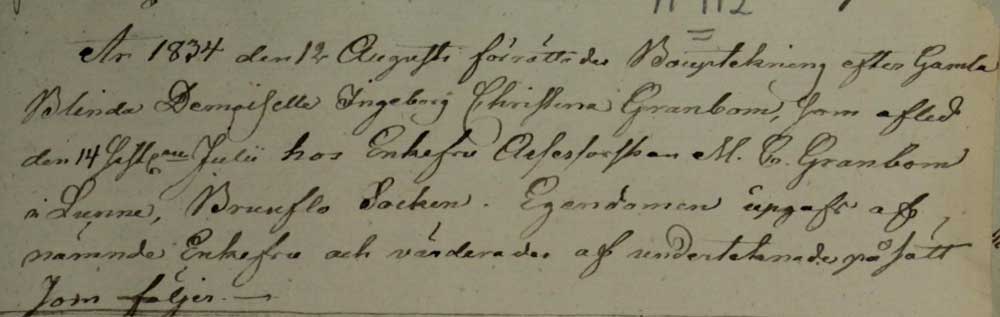 N 112
År 1834 den 12 Augusti förrättades Bouptekning efter Gamla
Blinda Demoiselle Ingeborg Christina Granbom, som afled
den 14 sistl. Julii hos Enkefru Assessorskan M. C. Granbom
i Lunne, Brunflo Socken. Egendomen upgafs af
nämnde Enkefru och värderades af underteknade på sätt
som följer. —